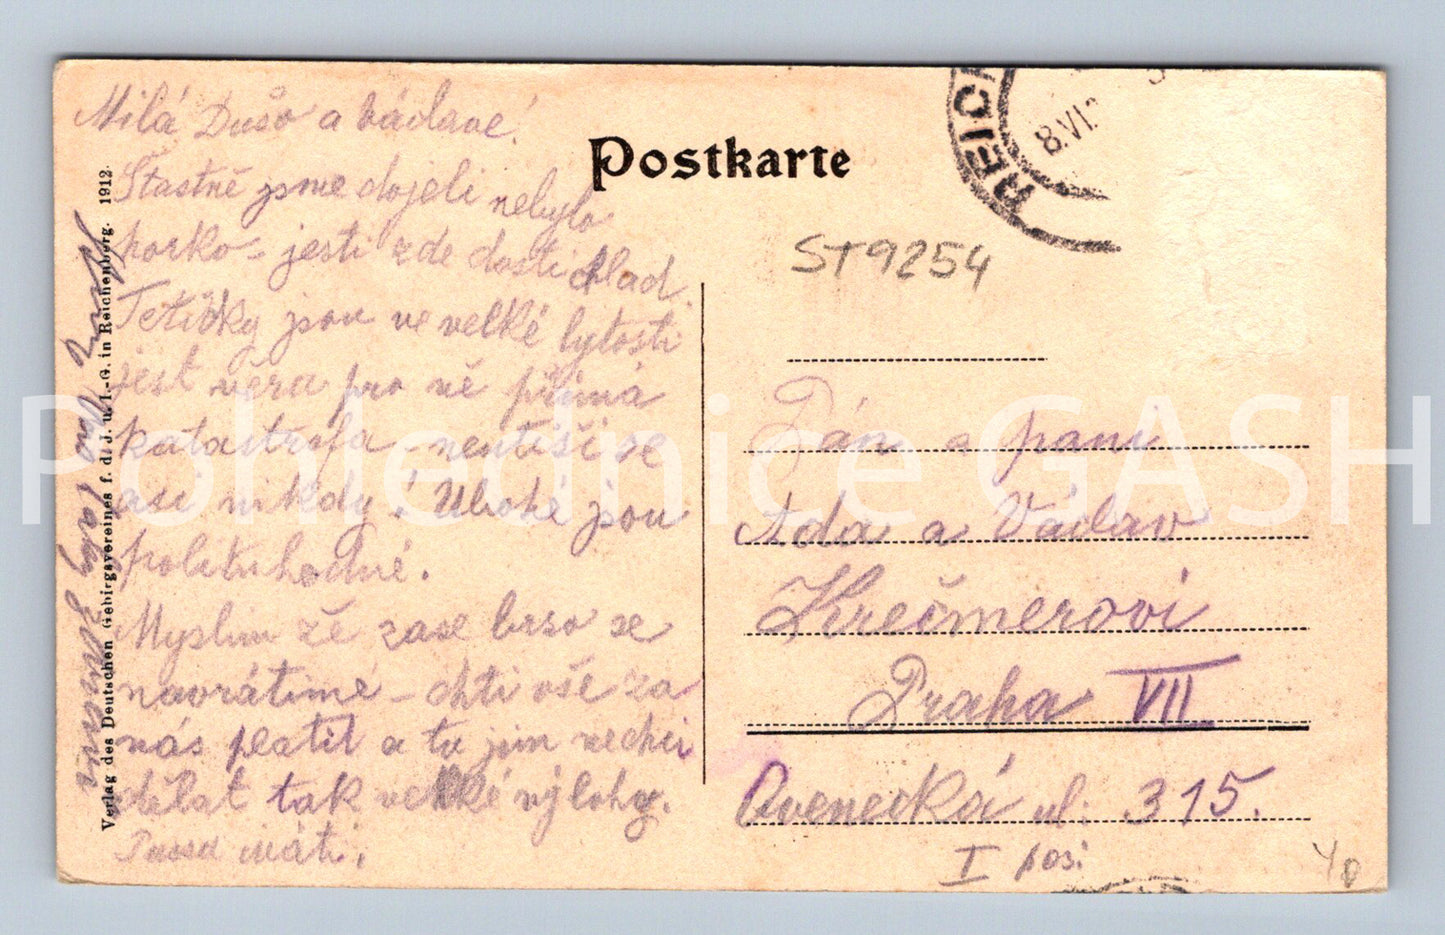 Postkarte
Milá Dušo a Václave!
Stastně jsme dojeli nebylo
horko - jesti zde dosti chlad.
Tetičky jsou ve velké lytosti
jest věra pro ně přímá
katastrofa - neutiší se
asi nikdy! Ubohé jsou
politu hodné.
Myslim žě zase brso se
navrátíme - chti vše za
nás platit a tu jim nechci
dělat tak velké výlohy.
Pusa máti.
Verlag des Deutschen Gebirgsvereines f. d. J. u. I.-G. in Reichenberg. 1912.
REICH
8.VI.
ST9254
Pán a pani
Ada a Václav
Krečmerovi
Praha VII
Ovenecká ul: 315.
I pos:
Pohlednice GASH